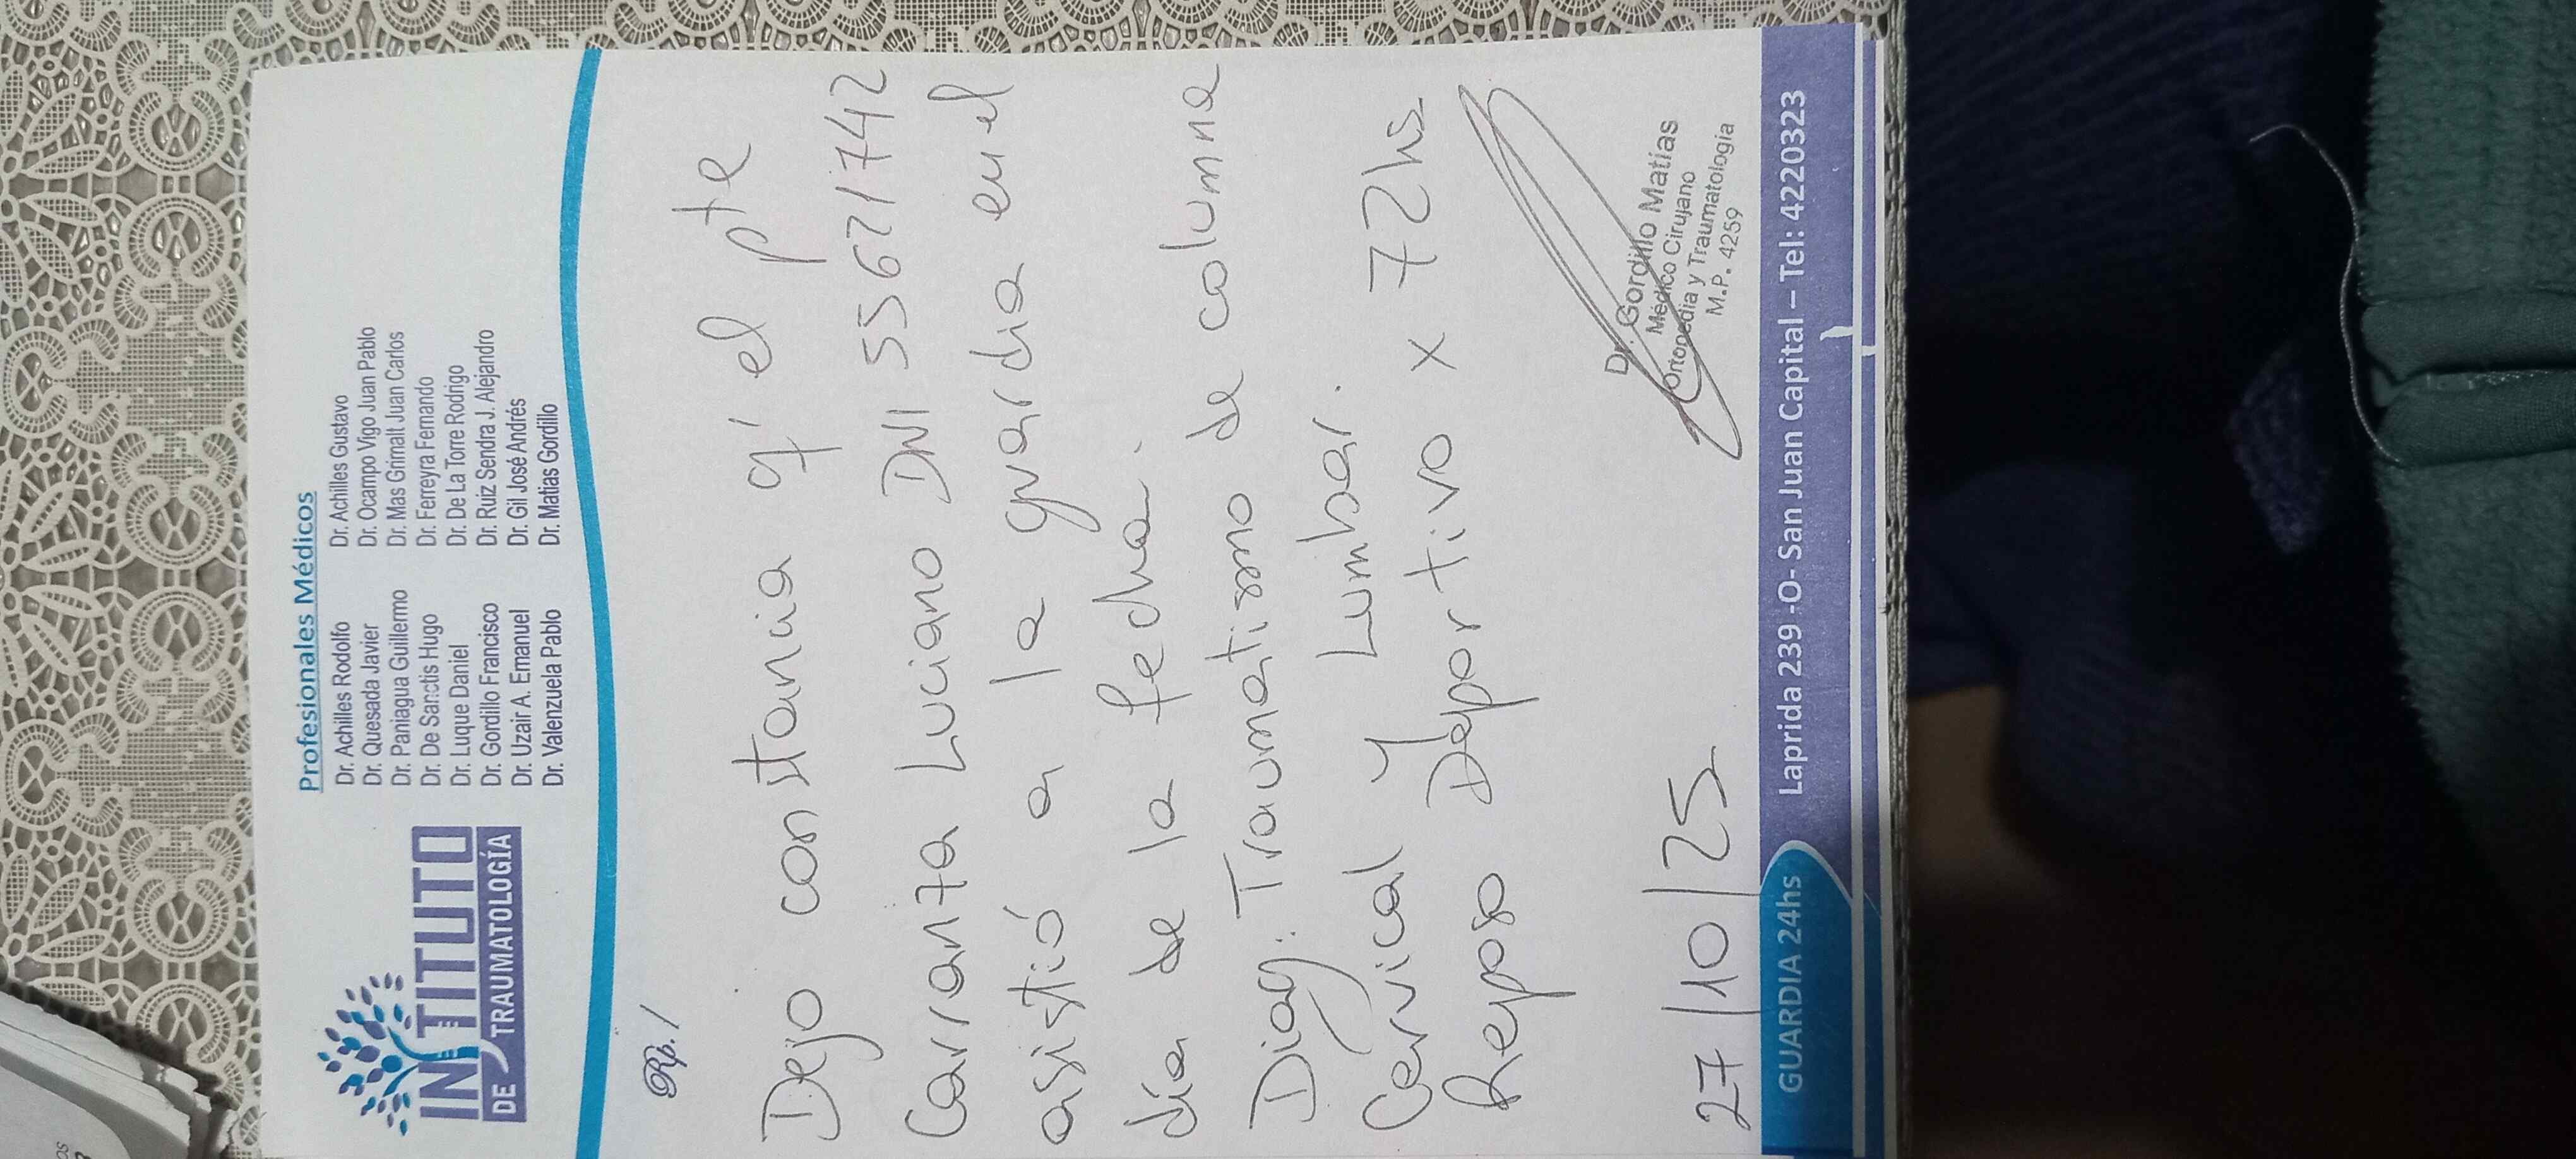 INSTITUTO
DE TRAUMATOLOGÍA
Profesionales Médicos
Dr. Achilles Rodolfo
Dr. Quesada Javier
Dr. Paniagua Guillermo
Dr. De Sanctis Hugo
Dr. Luque Daniel
Dr. Gordillo Francisco
Dr. Uzair A. Emanuel
Dr. Valenzuela Pablo
Dr. Achilles Gustavo
Dr. Ocampo Vigo Juan Pablo
Dr. Mas Grimalt Juan Carlos
Dr. Ferreyra Fernando
Dr. De La Torre Rodrigo
Dr. Ruiz Sendra J. Alejandro
Dr. Gil José Andrés
Dr. Matias Gordillo
Rp. /
Dejo constancia q' el pte
Carranza Luciano DNI 55621742
asistió a la guardia en el
día de la fecha.
Diag: Traumatismo de columna
Cervical y Lumbar.
Reposo Deportivo x 72hs
27/10/25
Dr. Gordillo Matías
Médico Cirujano
Ortopedia y Traumatología
M.P. 4259
GUARDIA 24hs Laprida 239 -O- San Juan Capital – Tel: 4220323